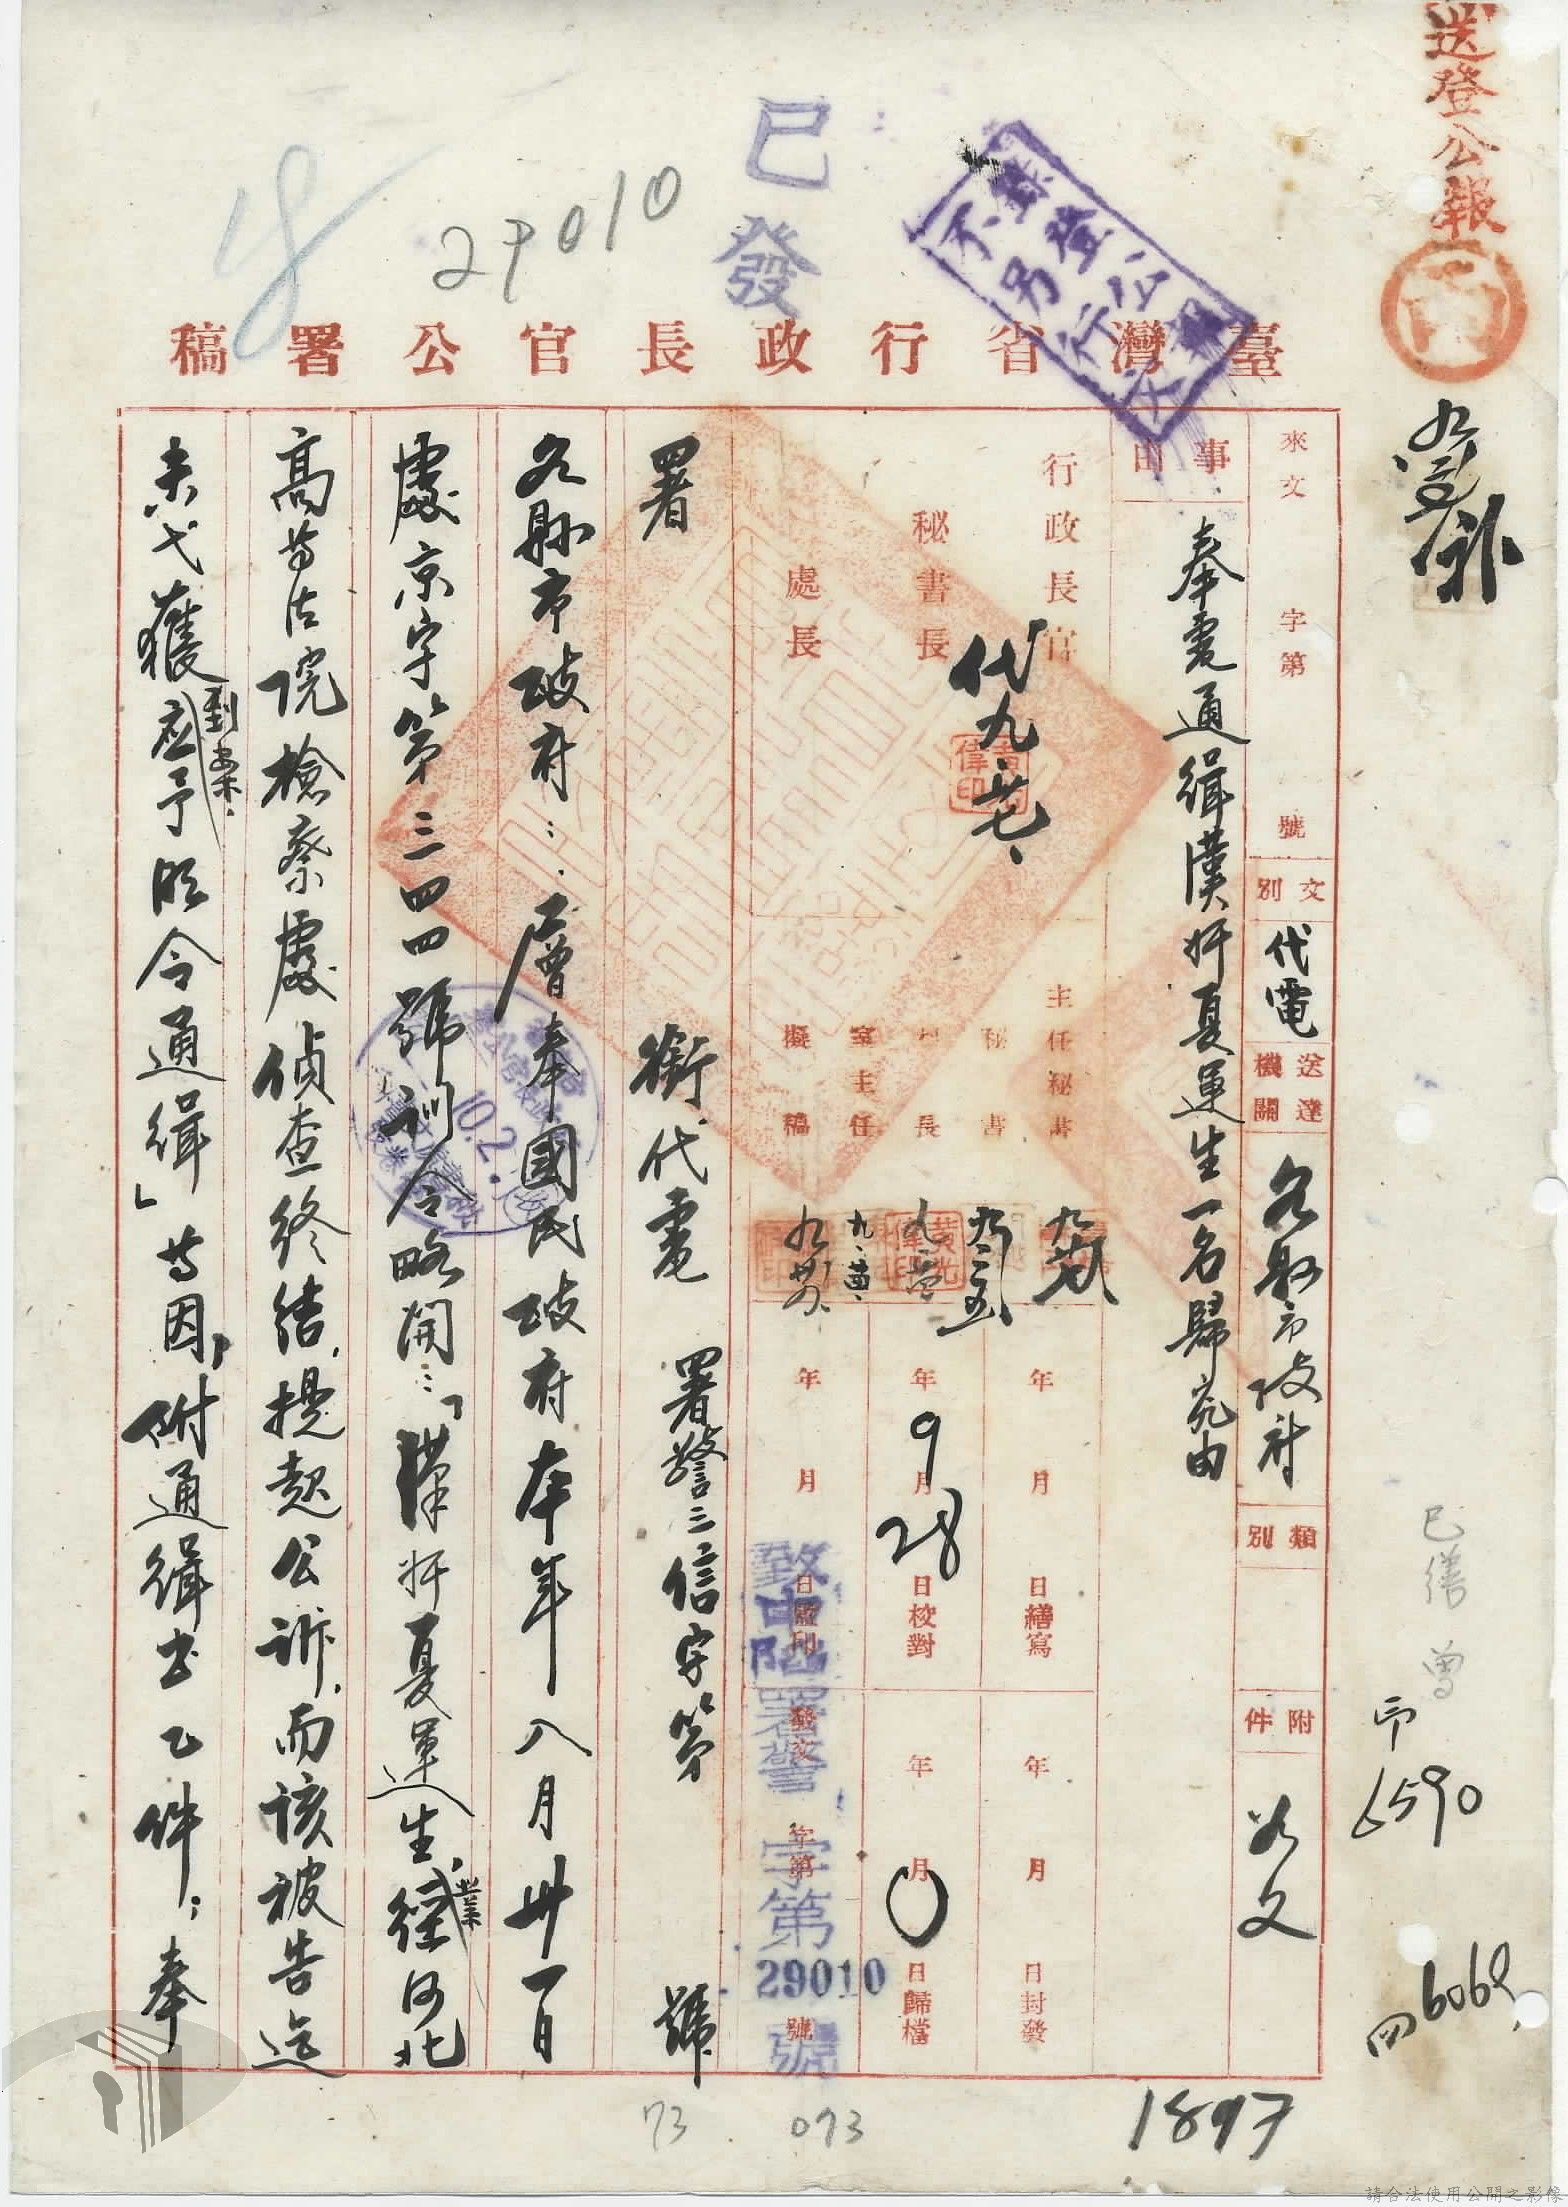 送登公報
已發
29010
登公報不另行文
臺灣省行政長官公署稿
來文 字第 號
文別 代電
送達機關 各縣市政府
類別
附件 如文
事由 奉電通緝漢奸夏運生一名歸究由
行政長官
秘書長
處長
代九、廿七、
主任秘書
秘書
科長
室主任
擬稿
年 月 日繕寫
年 9 月 28 日校對
年 月 日蓋印
年 月 日封發
年 月 日歸檔
發文 字第 號
致申陷署警 字第 29010 號
署 銜代電 署警三信字第 號
各縣市政府：層奉國民政府本年八月卅一日
處京字第三四四號訓令略開：「漢奸夏運生，業經河北
高等法院檢察處偵查終結，提起公訴，而該被告迄
未弋獲到案，應予明令通緝」等因，附通緝書乙件；奉
已繕
印
6590
6069
1897
73
073
10.2.
請合法使用公開之影像